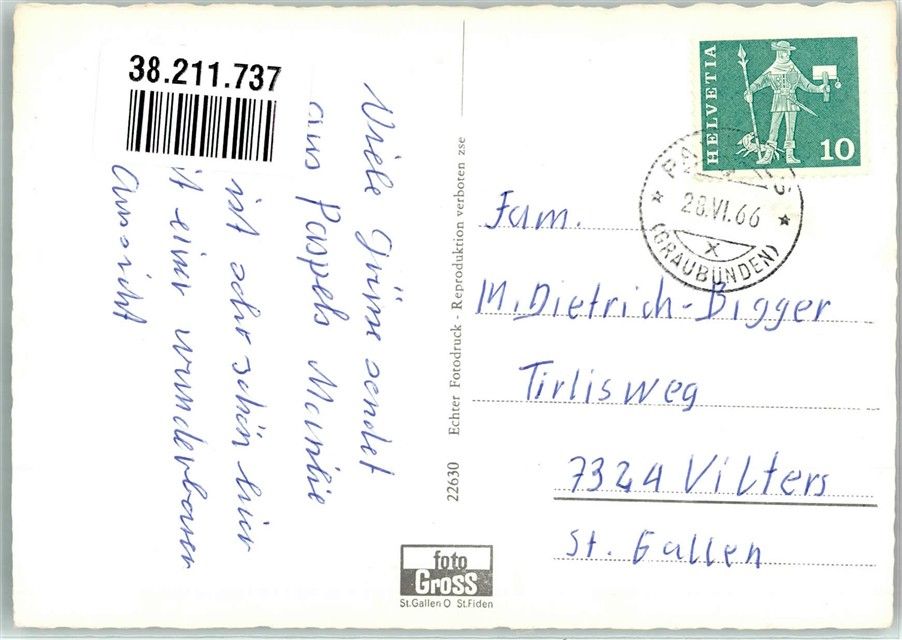 38.211.737
Viele Grüsse sendet
aus Paspels
ist sehr schön hier
it einer wunderbaren
Aussicht
Echter Fotodruck - Reproduktion verboten zse
22630
foto
Gross
St.Gallen O St.Fiden
HELVETIA
10
28.VI.66
X
(GRAUBÜNDEN)
Fam.
M. Dietrich-Bigger
Tirlisweg
7324 Vilters
St. Gallen